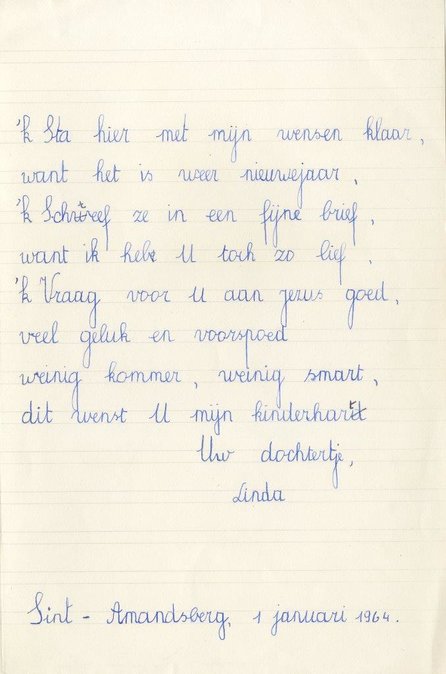 'k Sta hier met mijn wensen klaar,
want het is weer nieuwejaar,
'k Schreef ze in een fijne brief,
want ik heb U toch zo lief,
'k Vraag voor U aan jezus goed,
veel geluk en voorspoed
weinig kommer, weinig smart,
dit wenst U mijn kinderhart
Uw dochtertje,
Linda
Sint - Amandsberg, 1 januari 1964.